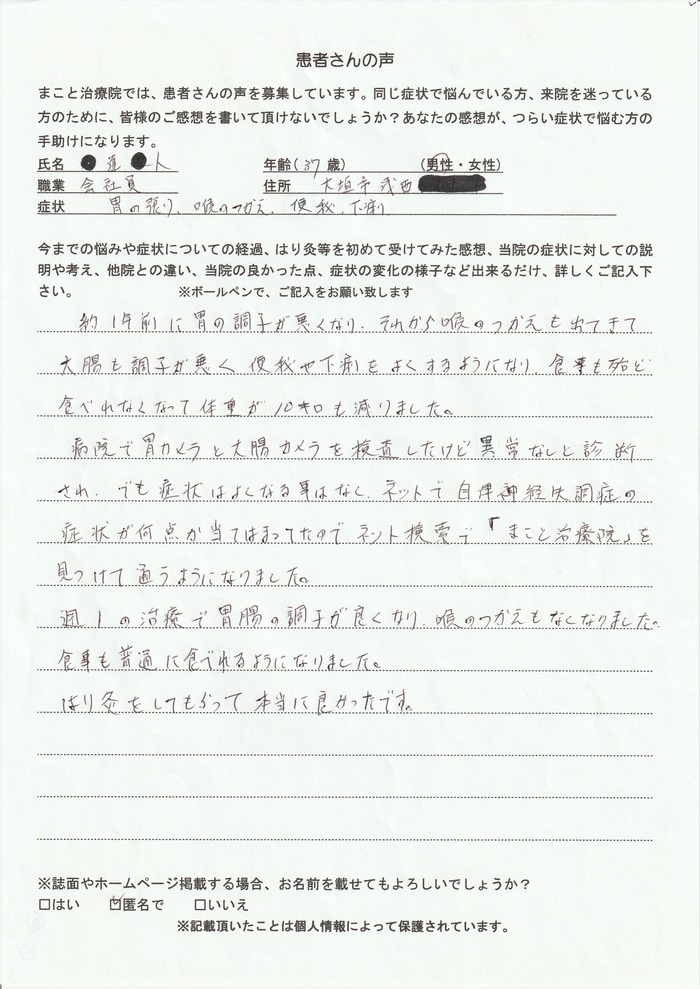 患者さんの声
まこと治療院では、患者さんの声を募集しています。同じ症状で悩んでいる方、来院を迷っている
方のために、皆様のご感想を書いて頂けないでしょうか？あなたの感想が、つらい症状で悩む方の
手助けになります。
氏名 人 年齢（37歳） （男性・女性）
職業 会社員 住所 大垣市浅西
症状 胃の張り、喉のつかえ、便秘、下痢
今までの悩みや症状についての経過、はり灸等を初めて受けてみた感想、当院の症状に対しての説
明や考え、他院との違い、当院の良かった点、症状の変化の様子など出来るだけ、詳しくご記入下
さい。 ※ボールペンで、ご記入をお願い致します
約1年前に胃の調子が悪くなり、それから喉のつかえも出てきて
大腸も調子が悪く、便秘や下痢をよくするようになり、食事も殆ど
食べれなくなって体重が10キロも減りました。
病院で胃カメラと大腸カメラを検査したけど異常なしと診断
され、でも症状はよくなる事はなく、ネットで自律神経失調症の
症状が何点か当てはまってたのでネット検索で「まこと治療院」を
見つけて通うようになりました。
週1の治療で胃腸の調子が良くなり、喉のつかえもなくなりました。
食事も普通に食べれるようになりました。
はり灸をしてもらって本当に良かったです。
※誌面やホームページ掲載する場合、お名前を載せてもよろしいでしょうか？
□はい ☑匿名で □いいえ
※記載頂いたことは個人情報によって保護されています。